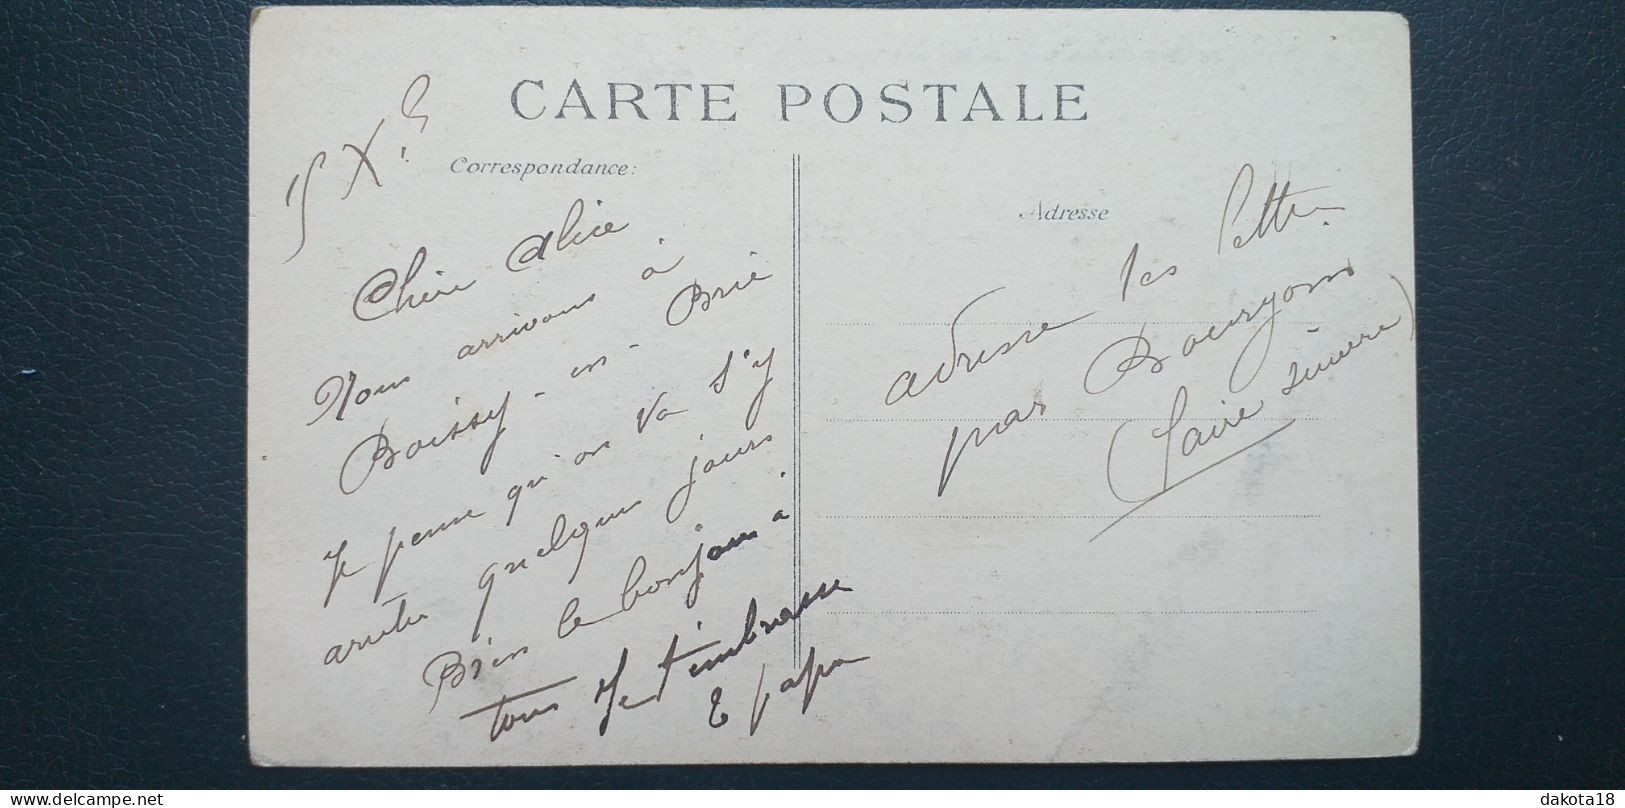 CARTE POSTALE
Correspondance:
Adresse
Chère Alice
Nous arrivons à
Boissy-en-Brie
Je pense qu'on va s'y
arrêter quelques jours
Bien le bonjour à
tous Je t'embrasse
E papa
adresse les lettres
par Bourgoin
(faire suivre)
dakota18